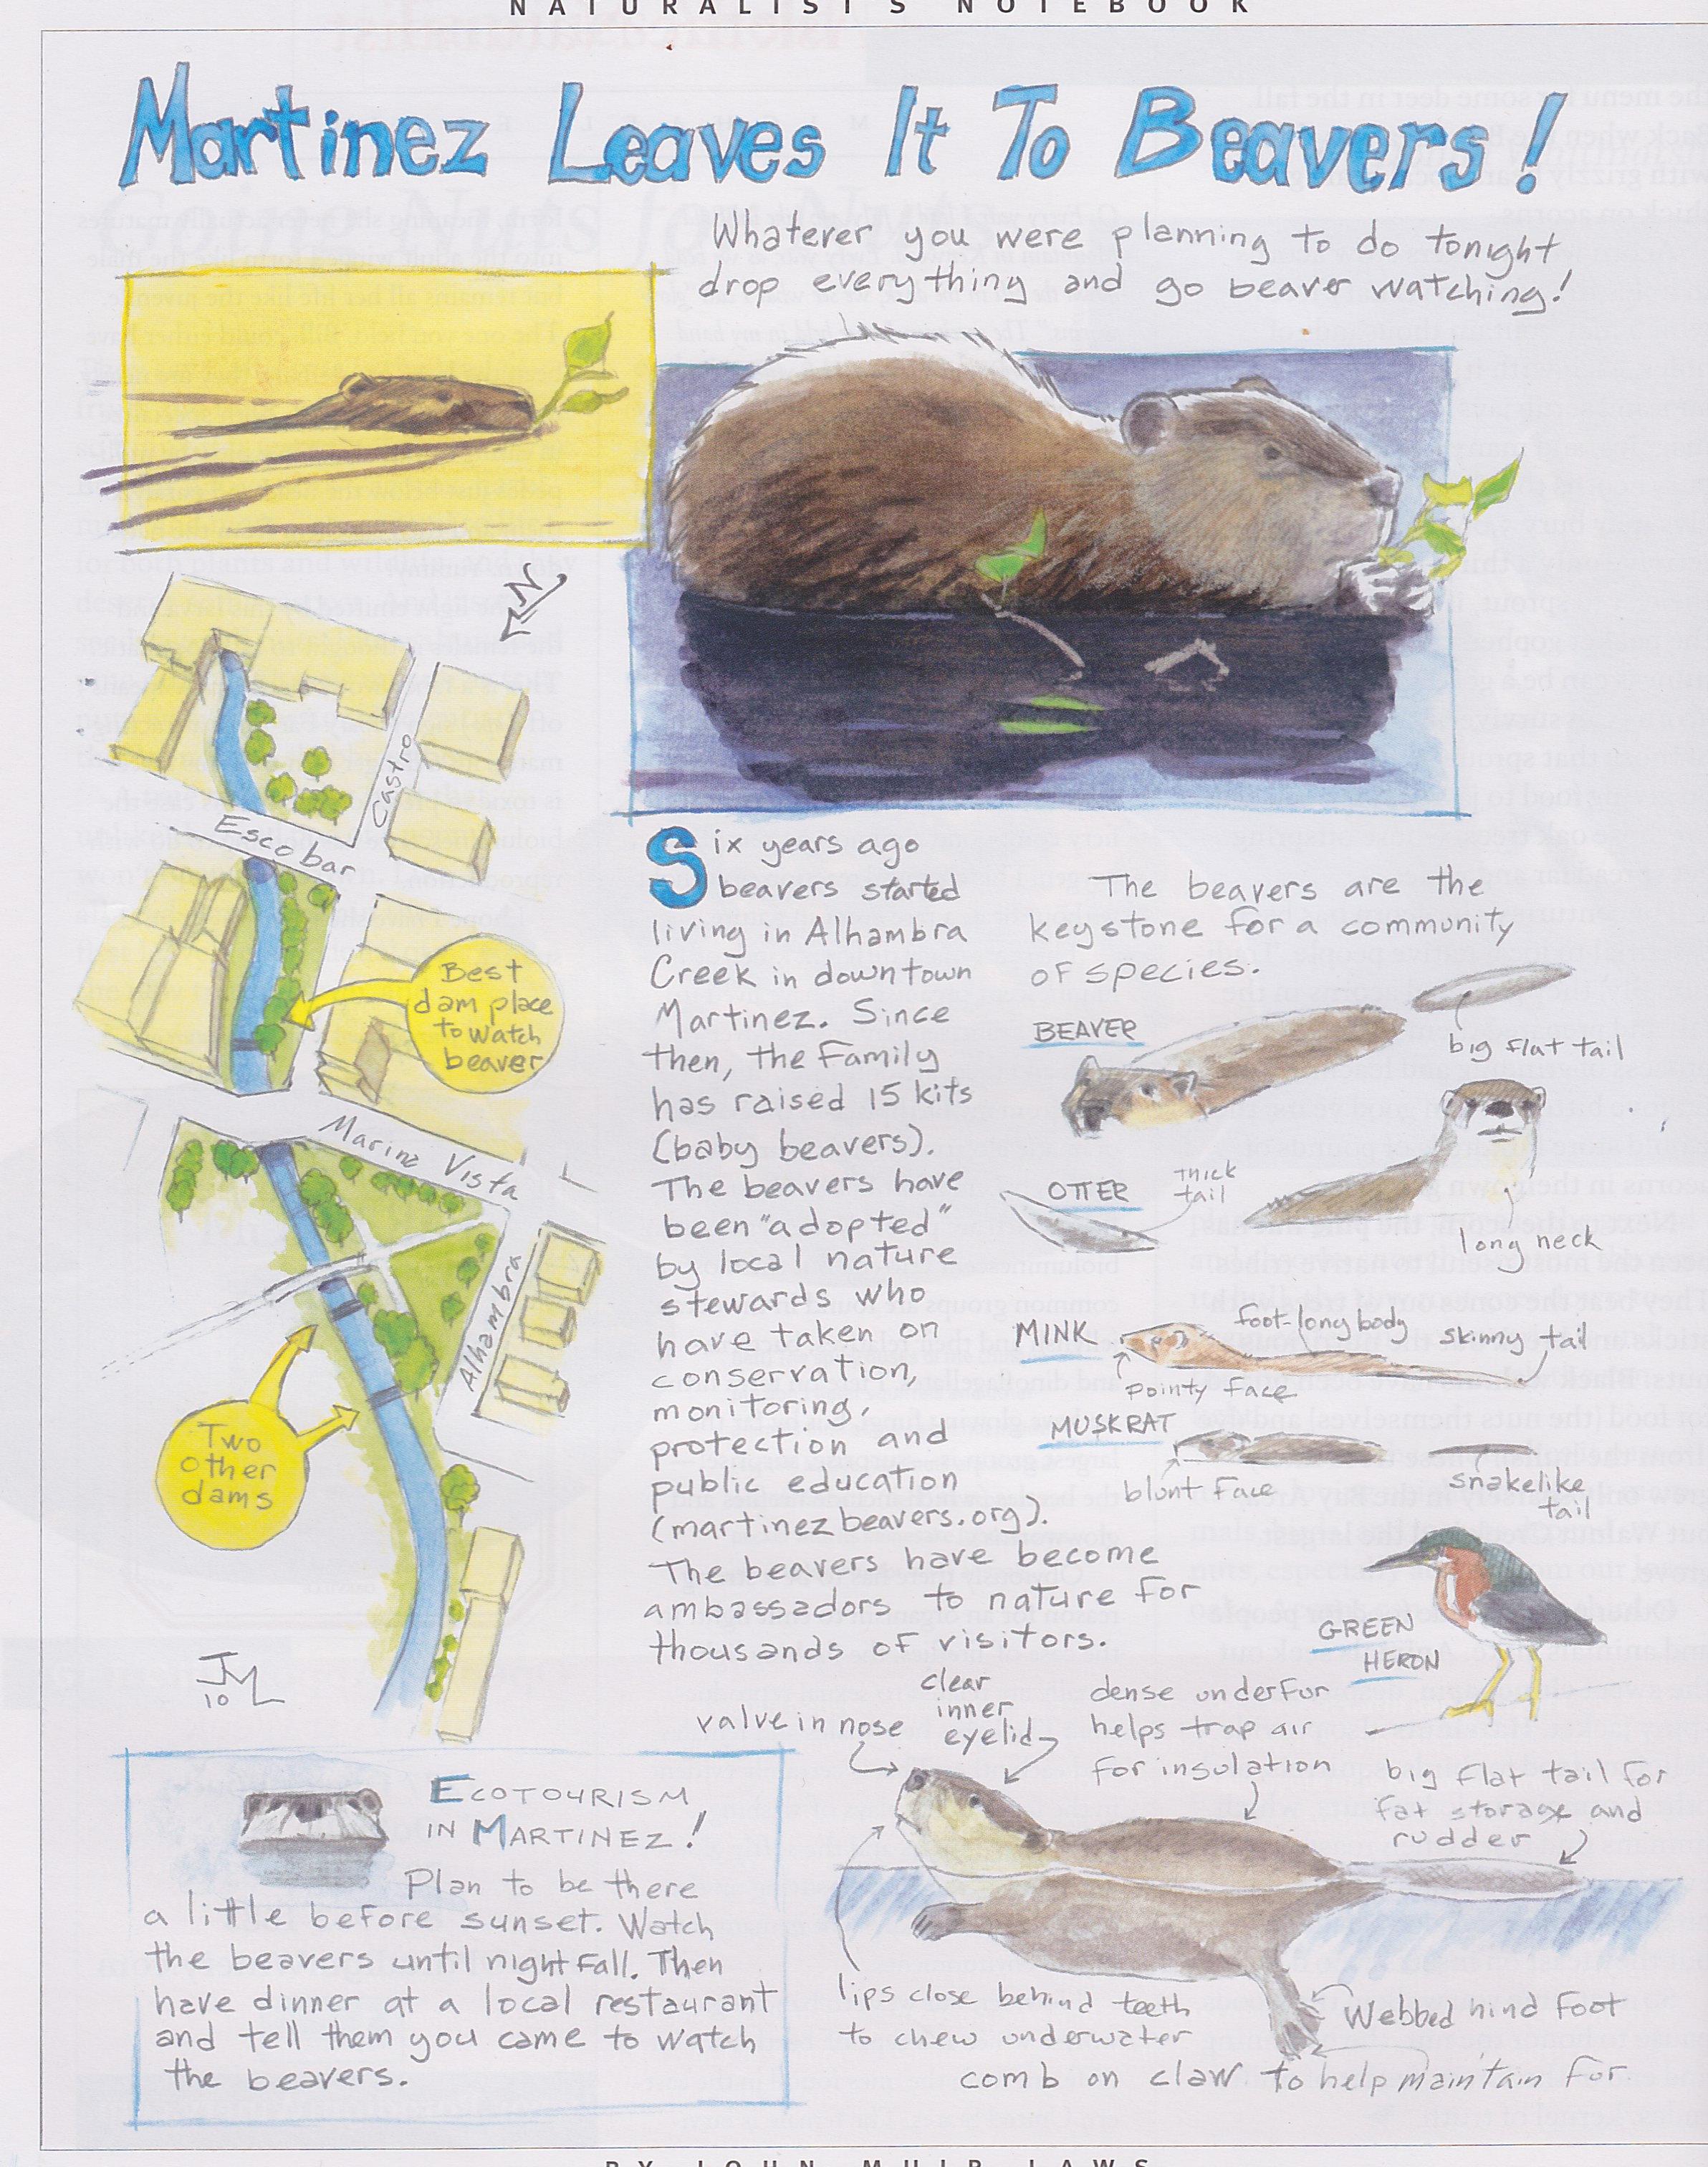 NATURALIST'S NOTEBOOK
Martinez Leaves It To Beavers!
Whatever you were planning to do tonight
drop everything and go beaver watching!
N
Castro
Escobar
Best
dam place
to watch
beaver
Marina Vista
Alhambra
Two
other
dams
JML
10
Six years ago
beavers started
living in Alhambra
Creek in downtown
Martinez. Since
then, the family
has raised 15 kits
(baby beavers).
The beavers have
been "adopted"
by local nature
stewards who
have taken on
conservation,
monitoring,
protection and
public education
(martinezbeavers.org).
The beavers have become
ambassadors to nature for
thousands of visitors.
The beavers are the
keystone for a community
of species.
BEAVER
big flat tail
OTTER
thick
tail
long neck
MINK
foot-long body
skinny tail
pointy face
MUSKRAT
blunt face
snakelike
tail
GREEN
HERON
valve in nose
clear
inner
eyelid
dense underfur
helps trap air
for insulation
big flat tail for
fat storage and
rudder
lips close behind teeth
to chew underwater
Webbed hind foot
comb on claw to help maintain fur
ECOTOURISM
IN MARTINEZ!
Plan to be there
a little before sunset. Watch
the beavers until nightfall. Then
have dinner at a local restaurant
and tell them you came to watch
the beavers.
BY JOHN MUIR LAWS